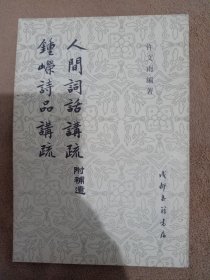 许文雨编著
人間詞話講疏
附補遺
鍾嶸詩品講疏
成都古籍書店